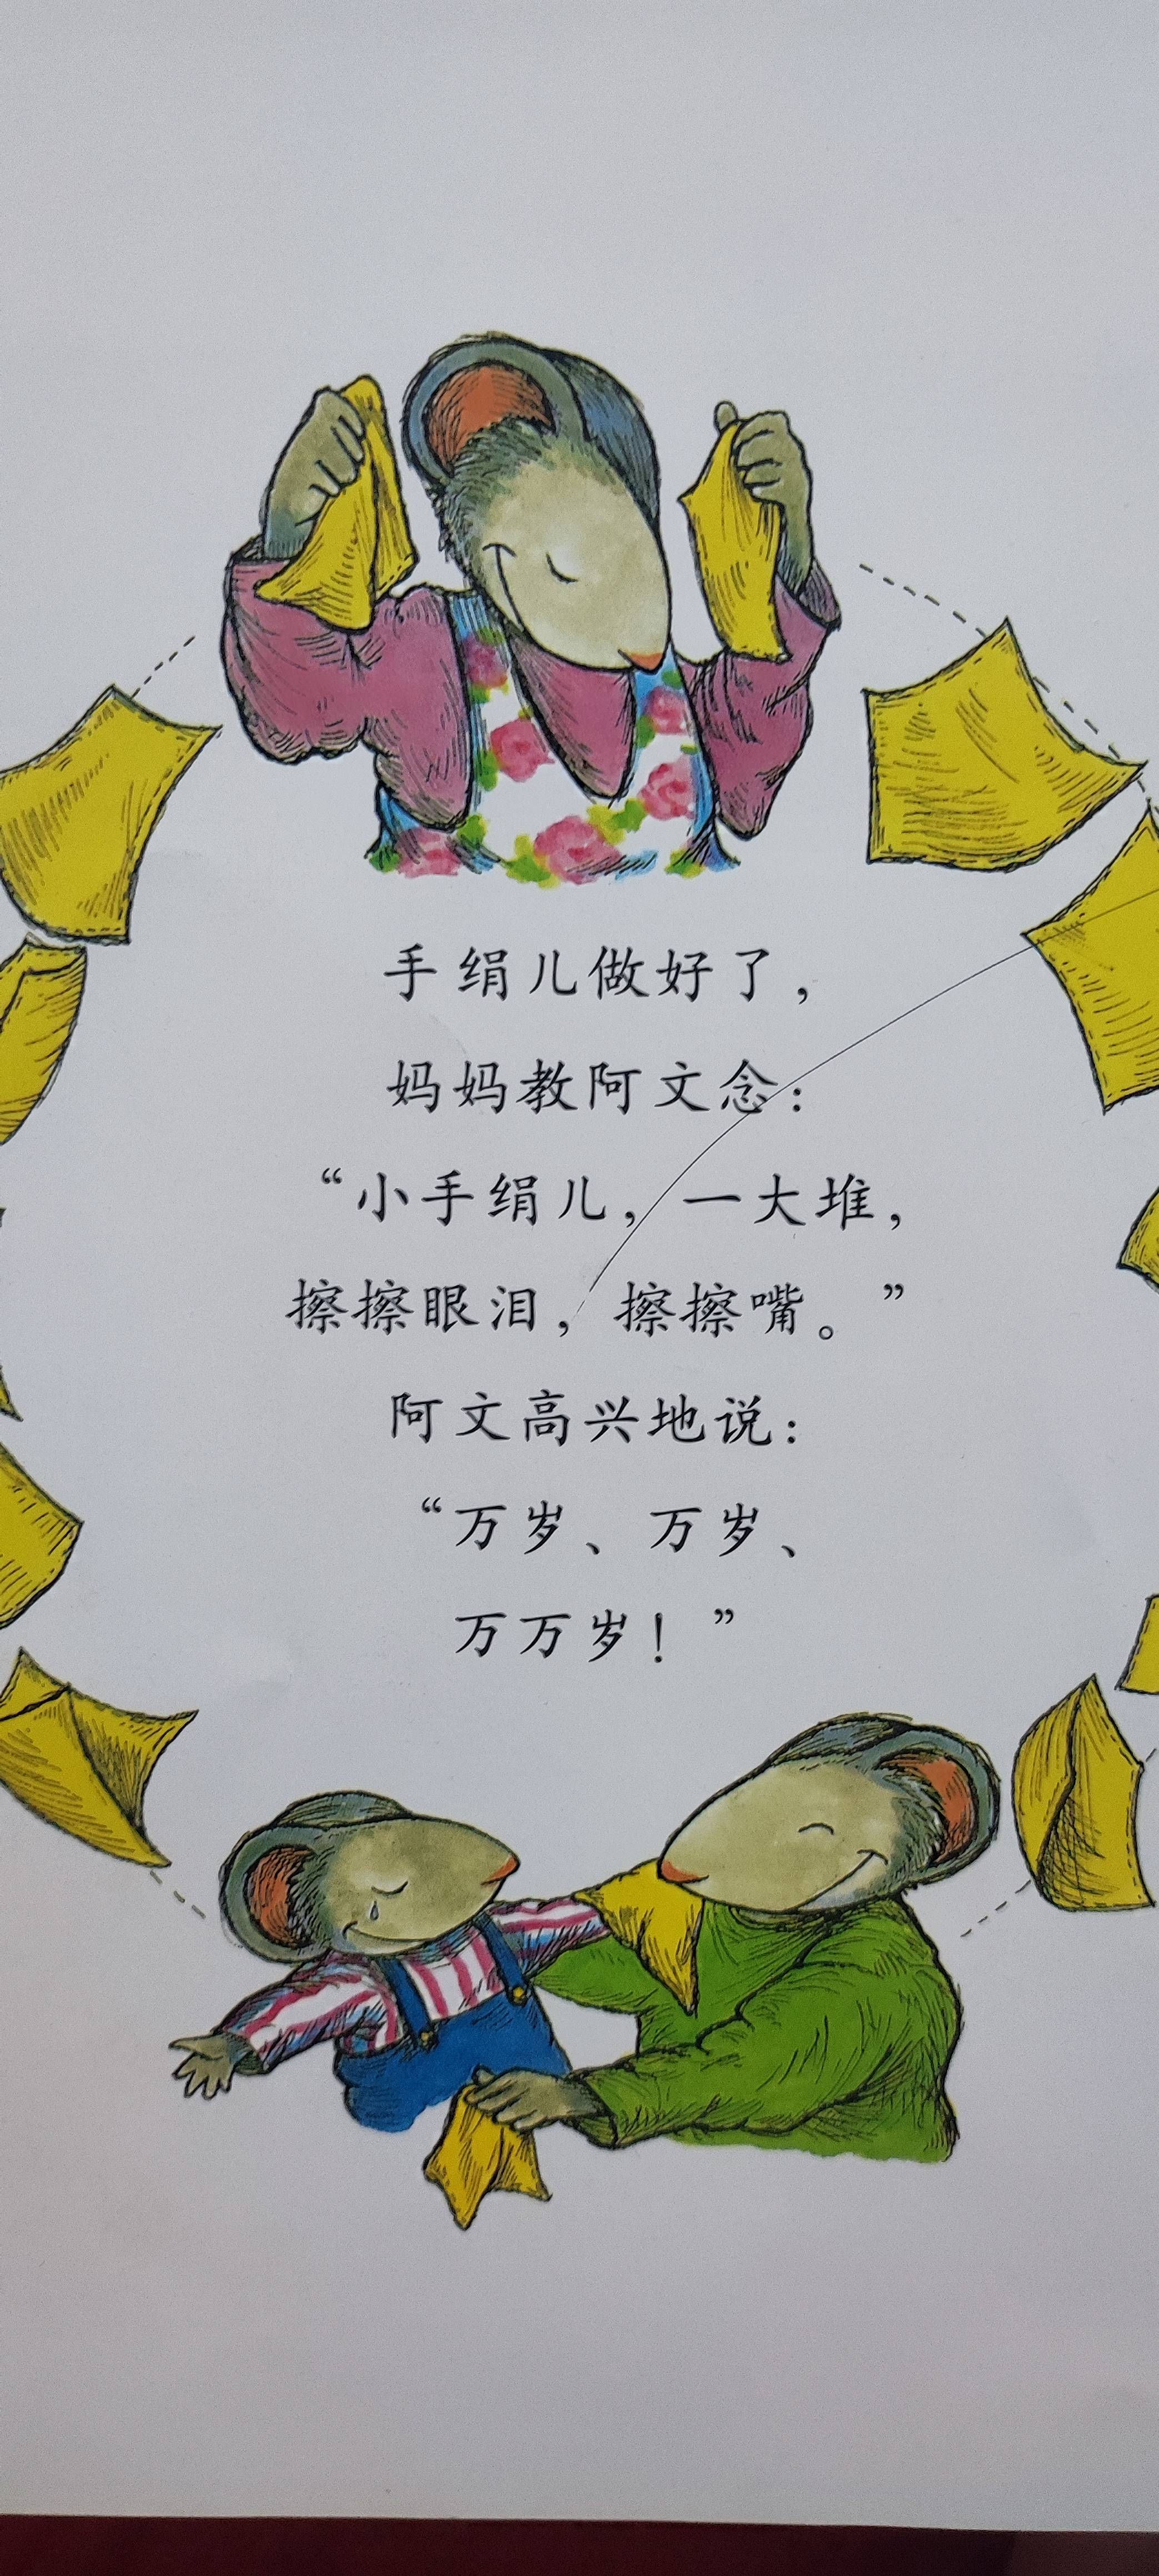 手绢儿做好了，
妈妈教阿文念：
“小手绢儿，一大堆，
擦擦眼泪，擦擦嘴。”
阿文高兴地说：
“万岁、万岁、
万万岁！”